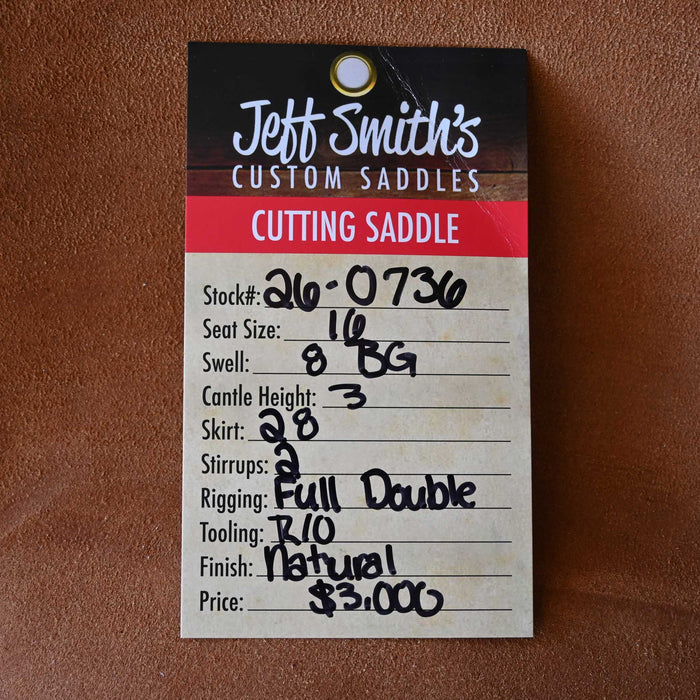 Jeff Smith's
CUSTOM SADDLES
CUTTING SADDLE
Stock#: 26-0736
Seat Size: 16
Swell: 8 BG
Cantle Height: 3
Skirt: 28
Stirrups: 2
Rigging: Full Double
Tooling: R10
Finish: Natural
Price: $3,000